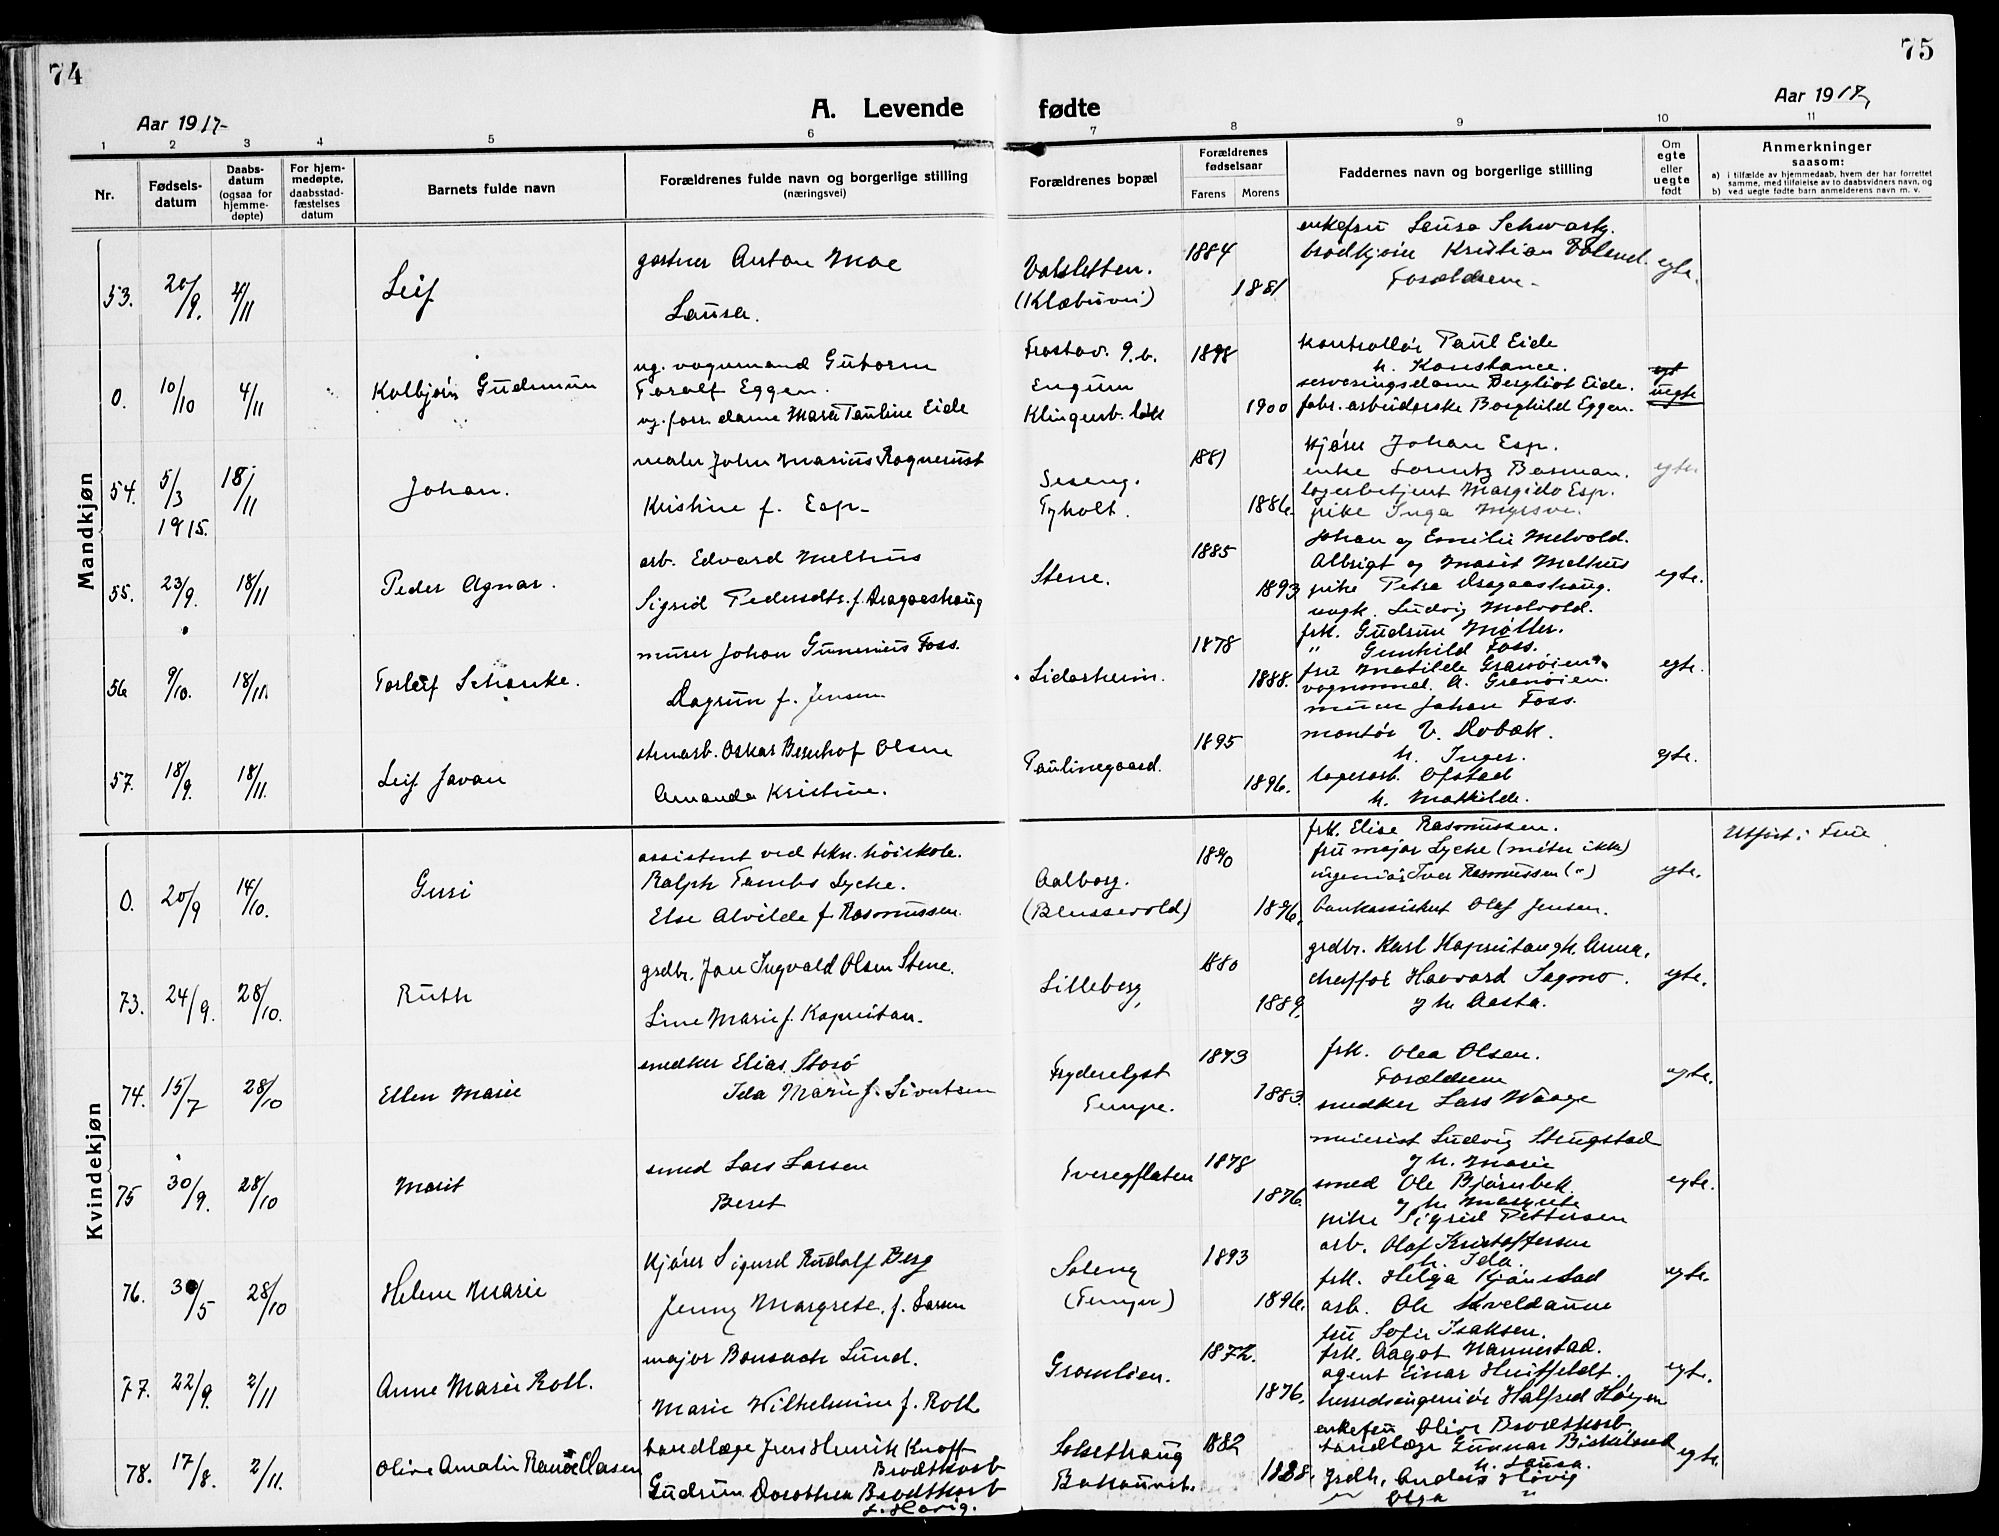 74
75
A. Levende fødte
Aar 1917
Aar 1917
1 2 3 4 5 6 7 8 9 10 11
Nr.
Fødsels-
datum
Daabs-
datum
(ogsaa for
hjemme-
døpte)
For hjem-
medøpte,
daabsstad-
fæstelses
datum
Barnets fulde navn
Forældrenes fulde navn og borgerlige stilling
(næringsvei)
Forældrenes bopæl
Forældrenes
fødselsaar
Farens Morens
Faddernes navn og borgerlige stilling
Om
egte
eller
uegte
født
Anmerkninger
saasom:
a) i tilfælde av hjemmedaab, hvem der har forrettet
samme, med tilføielse av to daabsvidners navn, og
b) ved uegte født barn anmelderens navn m. v.
Mandkjøn
53. 20/9. 4/11 Leif
gartner Anton Moe
Laura.
Valsletten.
(Klæbuvei)
1884
1881
enkefru Laura Schwartz.
brødkjører Kristian
Forældrene
egte.
0. 10/10 4/11 Kolbjørn Gudmun
ug. vognmand Guttorm
Toralf Eggen.
ug. forr. dame Marta Pauline Eide
Frostav. 9. b.
Engum
Klingenb. løkk
1898
1900
kontrollør Paul Eide
h. Konstance.
serveringsdame Bergliot Eide.
fabr. arbeiderske Borghild Eggen.
egt
uegte
54. 5/3 1915. 18/11 Johan.
maler John Marius Rognerust
Kristine f. Esp
Tyholt.
1881
1886.
kjører Johan Esp.
enke Lorentz Bosman.
lagerbetjent Margido Esp.
pike Inga Myrsve.
egte
55. 23/9. 18/11 Peder Agnar.
arb. Edvard Melhus
Sigrid Pedersdtr. f. Dragaashaug
Stene.
1885
1893
Johan og Emilie Melvold.
Albrigt og Marit Melhus
pike Petra Dragaashaug.
ungk. Ludvig Melvold.
egte.
56 9/10. 18/11. Torleif Schanke.
murer Johan Gunerius Foss.
Dagrun f. Jensen
Lidarheim.
1878
1888.
frk. Gudrun Møller.
" Gunhild Foss.
fru Matilde Granøien
vognmnd. A. Granøien.
murer Johan Foss.
egte.
57. 18/9. 18/11. Leif Javan
stenarb. Oskar Bernhof Olsen
Amanda Kristine.
Paulinegaard.
1895
1896.
montør V. Dybæk.
h. Inger.
lagerarb. Ofstad
h. Mathilde.
egte.
Kvindekjøn
0. 20/9 14/10. Guri
assistent ved tekn. høiskole.
Ralph Tambs Lyche.
Else Alvilde f. Rasmussen.
Aalborg.
(Blussevold)
1890
1896.
frk. Elise Rasmussen.
fru major Lyche (møter ikke)
ingeniør Iver Rasmussen (")
bankassistent Olaf Jensen.
egte.
Utført i Frue
73. 24/9. 28/10. Ruth
grdbr. Jon Ingvald Olsen Stene.
Line Marie f. Kapreitan.
Lilleberg,
1880
1889.
grdbr. Karl Kapreitan og h. Anna.
chaffør Haavard Sagmo.
og h. Aasta.
egte.
74. 15/7 28/10 Ellen Marie
snedker Elias Storø
Ida Marie f. Sivertsen
Fryderslyst
Tempe.
1873
1883.
frk. Olea Olsen.
Forældrene
snedker Lars Waage
egte.
75 30/9. 28/10 Marit
smed Lars Larsen
Beret
Tveregflaten
1878
1876.
meierist Ludvig Strugstad
og h. Marie
smed Ole Bjørnbek.
og h. Margrete
pike Sigrid Pettersen
egte.
76. 30/5 28/10 Helene Marie
kjører Sigurd Rudolf Berg
Jenny Margrete, f. Larsen
Soleng
(Tempe)
1893
1896.
arb. Olaf Kristoffersen
h. Ida.
frk. Helga Kjønstad
arb. Ole Kveldaune
egte.
77. 22/9. 2/11 Anne Marie Roll.
major Bonsach Lund.
Marie Wilhelmine f. Roll
Gramlien.
1872.
1876.
fru Sofie Isaksen.
frk. Aagot Hannestad.
agent Einar Huitfeldt.
herredsingeniør Halfred Høyem
egte.
78. 17/8. 2/11. Olive Amalie Clasen
tandlæge Jens Henrik Knoff
Brodtkorb
Gudrun Dorothea Brodtkorb
f. Høvig.
Solsethaug
Bakaunet.
1882
1888.
enkefru Olive Brodtkorb
tandlæge Gunnar Birkeland
h. Laura.
grdb. Anders Høvig
Olga "
egte.